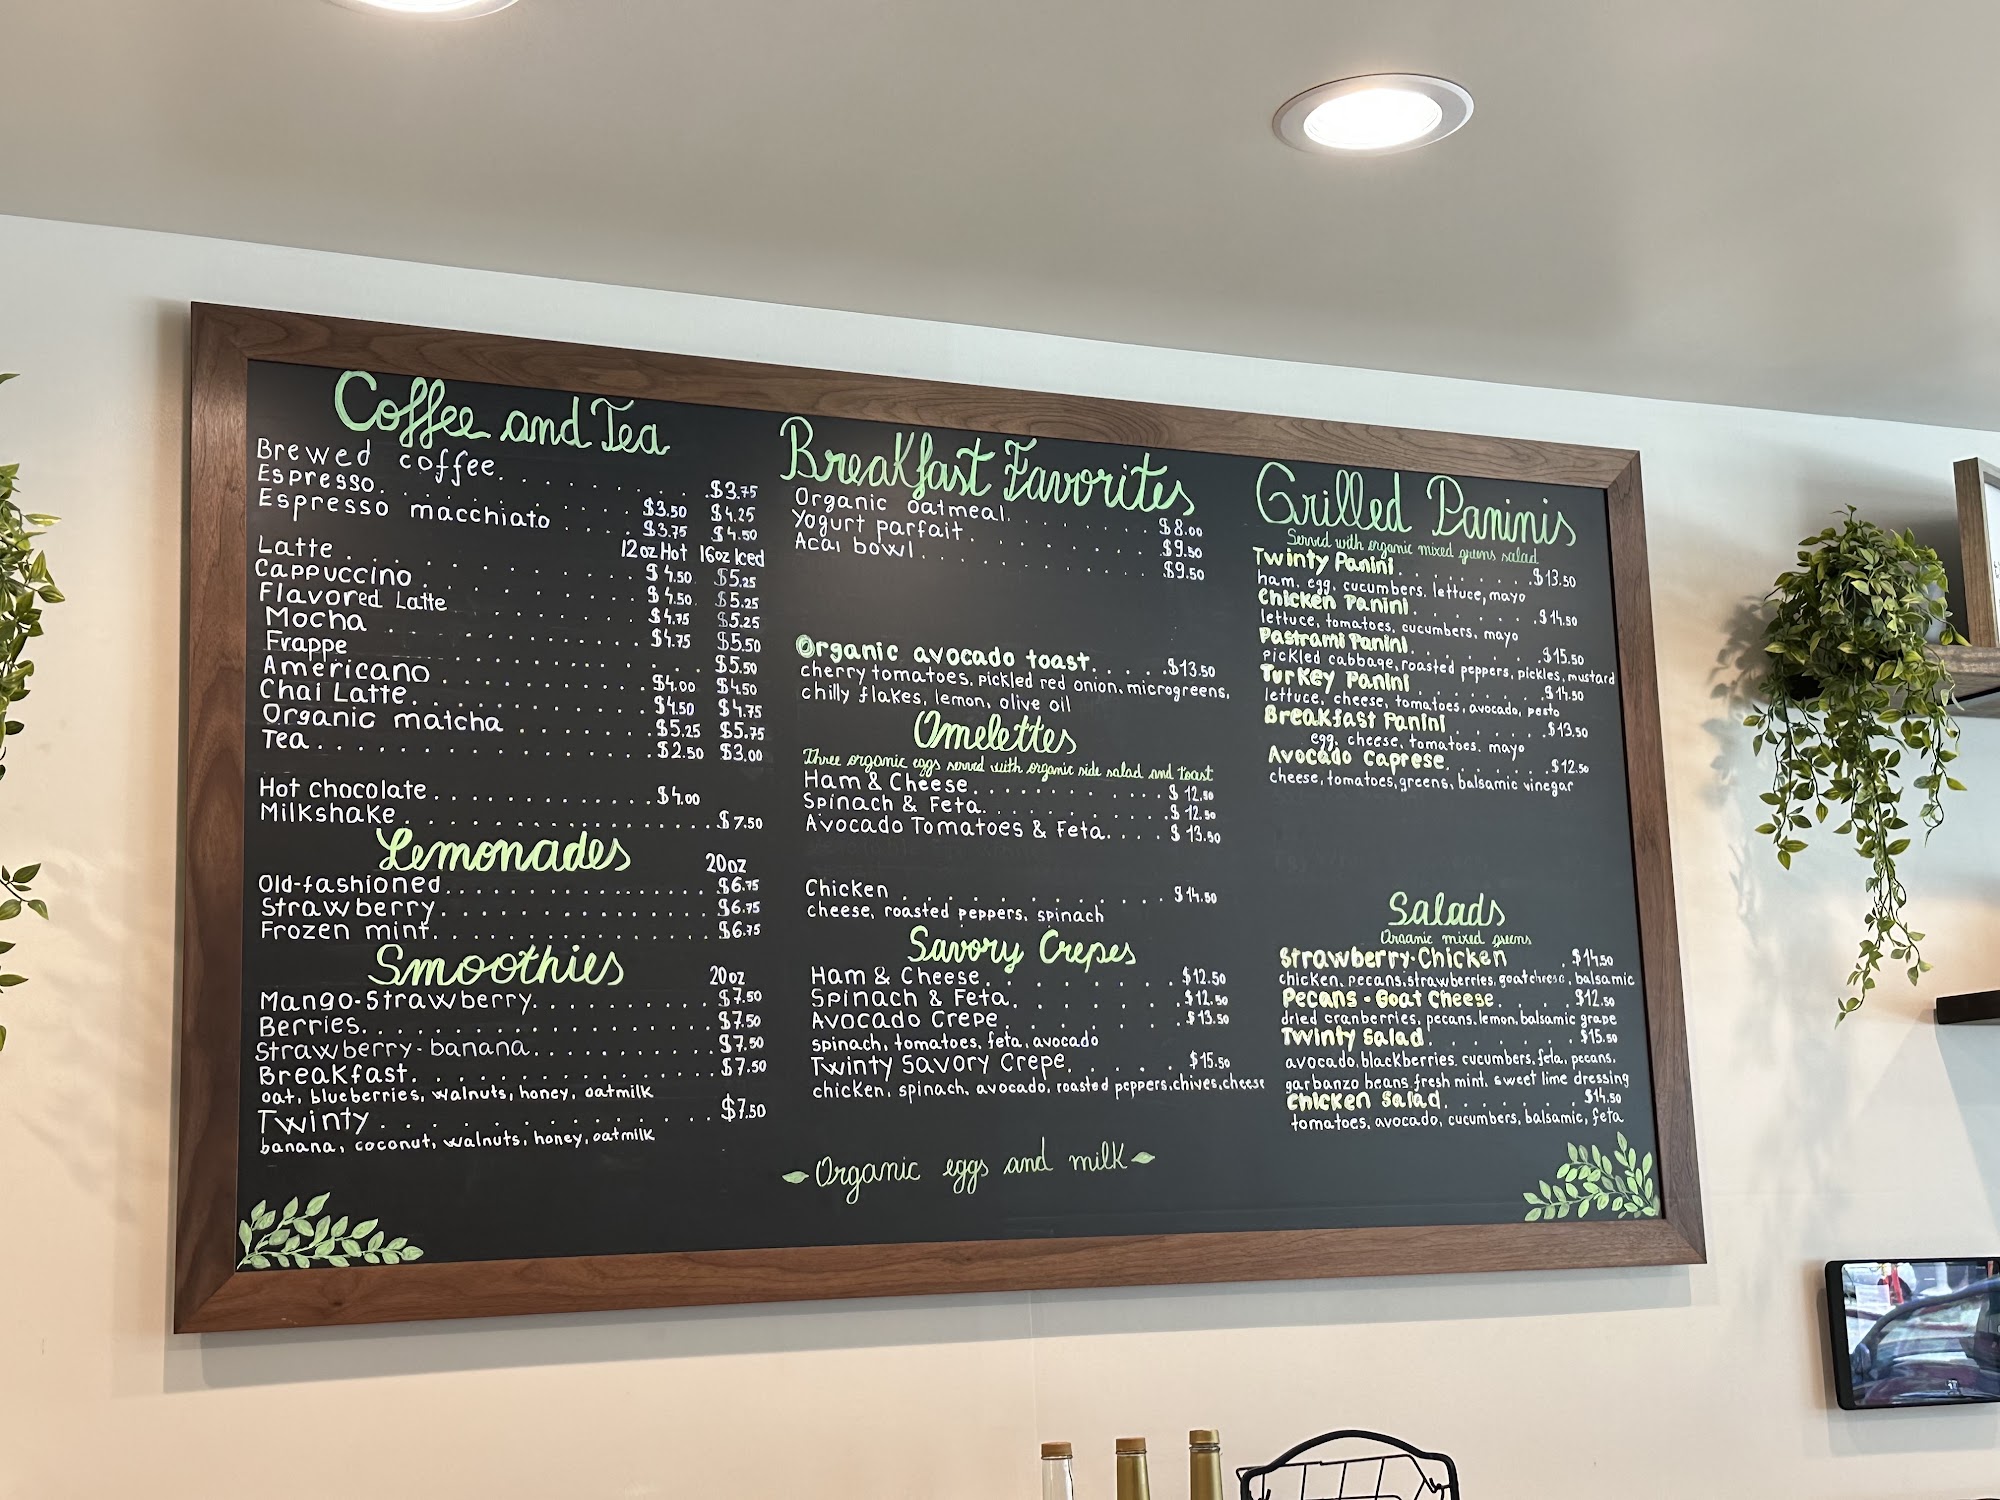 Coffee and Tea
Brewed coffee. . . . . . . . . . .$3.75
Espresso. . . . . . . . . . $3.50 $4.25
Espresso macchiato . . . . $3.75 $4.50
12oz Hot 16oz Iced
Latte . . . . . . . . . . . . . $4.50 $5.25
Cappuccino . . . . . . . . . . $4.50 $5.25
Flavored Latte . . . . . . . . $4.75 $5.25
Mocha . . . . . . . . . . . . $4.75 $5.50
Frappe . . . . . . . . . . . . . $5.50
Americano . . . . . . . . . . $4.00 $4.50
Chai Latte. . . . . . . . . . . $4.50 $4.75
Organic matcha . . . . . . . $5.25 $5.75
Tea. . . . . . . . . . . . . . . $2.50 $3.00
Hot chocolate. . . . . . . . . . . . .$4.00
Milkshake. . . . . . . . . . . . . . . . . .$7.50
Lemonades
20oz
Old-fashioned. . . . . . . . . . . . . . . . $6.75
Strawberry. . . . . . . . . . . . . . . . $6.75
Frozen mint. . . . . . . . . . . . . . . . $6.75
Smoothies
20oz
Mango-Strawberry. . . . . . . . . . $7.50
Berries. . . . . . . . . . . . . . . . . . . $7.50
Strawberry-banana. . . . . . . . . . $7.50
Breakfast. . . . . . . . . . . . . . . . . $7.50
oat, blueberries, walnuts, honey, oatmilk
Twinty. . . . . . . . . . . . . . . . $7.50
banana, coconut, walnuts, honey, oatmilk
Breakfast Favorites
Organic oatmeal. . . . . . . . $8.00
Yogurt parfait. . . . . . . . . . $9.50
Acai bowl. . . . . . . . . . . . $9.50
Organic avocado toast. . . . .$13.50
cherry tomatoes, pickled red onion, microgreens,
chilly flakes, lemon, olive oil
Omelettes
Three organic eggs served with organic side salad and toast
Ham & Cheese. . . . . . . . . . . $12.50
Spinach & Feta. . . . . . . . . . .$12.50
Avocado Tomatoes & Feta. . . . $13.50
Chicken . . . . . . . . . . . . . . $14.50
cheese, roasted peppers, spinach
Savory Crepes
Ham & Cheese. . . . . . . . $12.50
Spinach & Feta. . . . . . . $12.50
Avocado Crepe. . . . . . . $13.50
spinach, tomatoes, feta, avocado
Twinty Savory Crepe. . . . . $15.50
chicken, spinach, avocado, roasted peppers, chives, cheese
Organic eggs and milk
Grilled Paninis
Served with organic mixed greens salad
Twinty Panini. . . . . . . .$13.50
ham, egg, cucumbers, lettuce, mayo
Chicken Panini. . . . . . . .$14.50
lettuce, tomatoes, cucumbers, mayo
Pastrami Panini. . . . . . . .$15.50
pickled cabbage, roasted peppers, pickles, mustard
Turkey Panini. . . . . . . .$14.50
lettuce, cheese, tomatoes, avocado, pesto
Breakfast Panini. . . . . .$13.50
egg, cheese, tomatoes, mayo
Avocado Caprese. . . . . . .$12.50
cheese, tomatoes, greens, balsamic vinegar
Salads
Organic mixed greens
Strawberry-Chicken . $14.50
chicken, pecans, strawberries, goat cheese, balsamic
Pecans - Goat Cheese. . . . $12.50
dried cranberries, pecans, lemon, balsamic grape
Twinty Salad. . . . . . . $15.50
avocado, blackberries, cucumbers, feta, pecans,
garbanzo beans, fresh mint, sweet lime dressing
Chicken Salad. . . . . . . $14.50
tomatoes, avocado, cucumbers, balsamic, feta